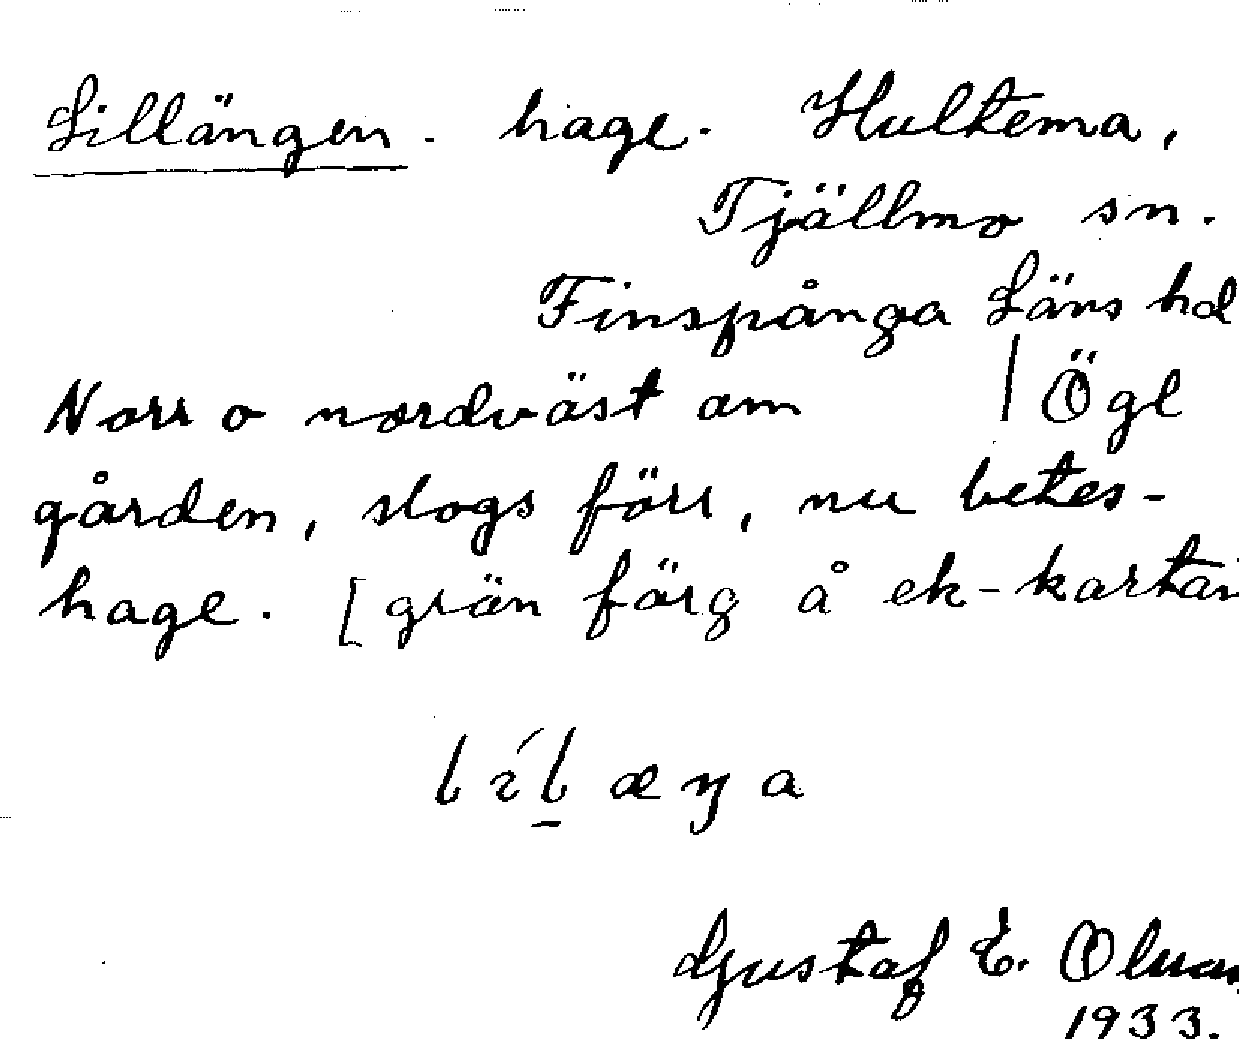 Lillängen. hage. Hultema,
Tjällmo sn.
Finspånga Läns hd
Norr o nordväst om | Ögl
gården, slogs förr, nu betes-
hage. [grön färg å ek-kartan
Gustaf E.
1933.